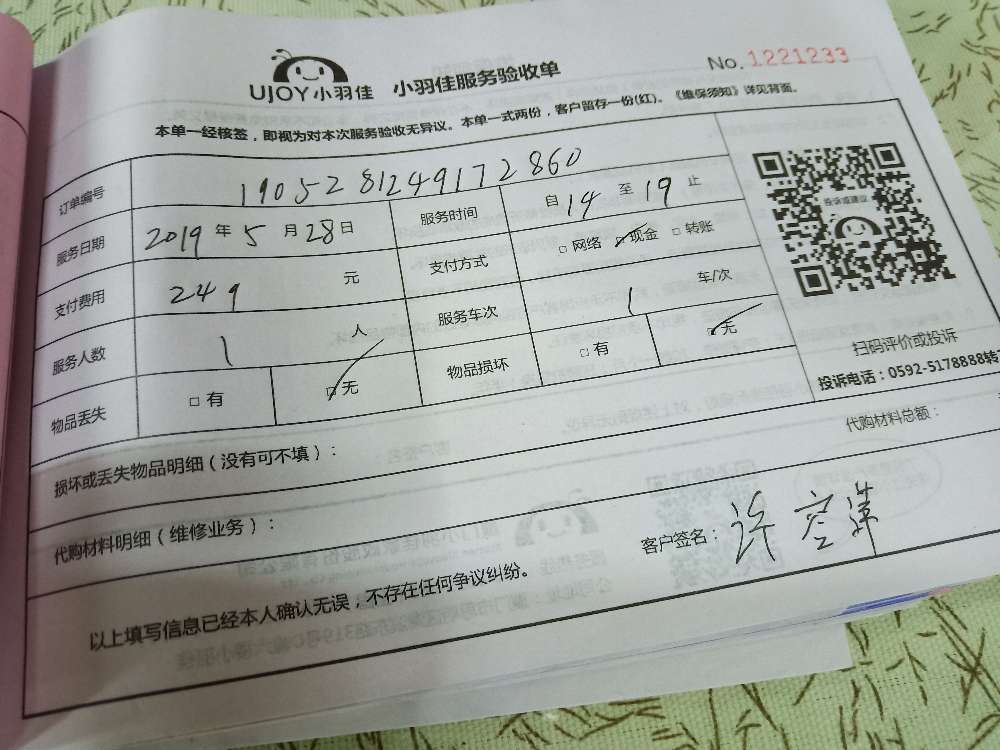 UJOY小羽佳 小羽佳服务验收单 No.1221233
本单一经核签，即视为对本次服务验收无异议。本单一式两份，客户留存一份(红)。《维保须知》详见背面。
订单编号 190528124917 2860
服务日期 2019年5月28日 服务时间 自14至19止
支付费用 249 元 支付方式 □网络 ☑现金 □转账
服务人数 1 人 服务车次 1 车/次
物品丢失 □有 ☑无 物品损坏 □有 ☑无
投诉或建议
扫码评价或投诉
投诉电话：0592-5178888转
损坏或丢失物品明细（没有可不填）：
代购材料明细（维修业务）： 代购材料总额：
以上填写信息已经本人确认无误，不存在任何争议纠纷。 客户签名：许